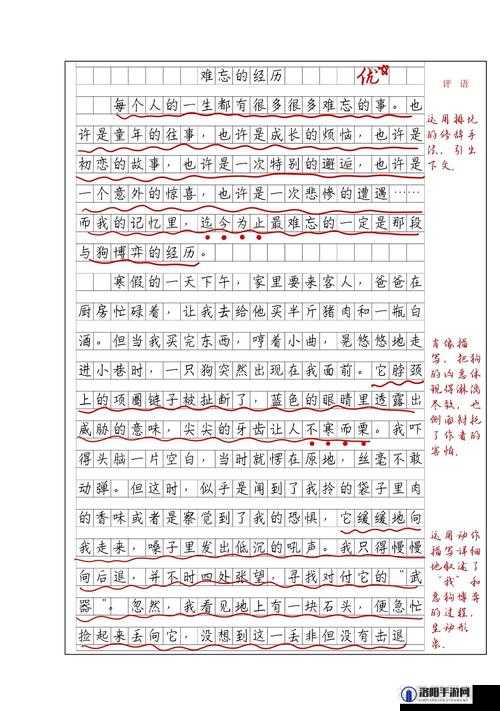 难忘的经历
优
评语
每个人的一生都有很多很多难忘的事。也
许是童年的往事，也许是成长的烦恼，也许是
初恋的故事，也许是一次特别的邂逅，也许是
一个意外的惊喜，也许是一次悲惨的遭遇……
而我的记忆里，迄今为止最难忘的一定是那段
与狗博弈的经历。
运用排比
的修辞手
法，引出
下文。
寒假的一天下午，家里要来客人，爸爸在
厨房忙碌着，让我去给他买半斤猪肉和一瓶白
酒。但当我买完东西，哼着小曲，晃悠悠地走
进小巷时，一只狗突然出现在我面前。它脖颈
上的项圈链子被扯断了，蓝色的眼睛里透露出
威胁的意味，尖尖的牙齿让人不寒而栗。我吓
得头脑一片空白，当时就愣在原地，丝毫不敢
动弹。但这时，似乎是闻到了我拎的袋子里肉
的香味或者是察觉到了我的恐惧，它缓缓地向
我走来，嗓子里发出低沉的吼声。我只得慢慢
向后退，并不时四处张望，寻找对付它的“武
器”。忽然，我看见地上有一块石头，便急忙
捡起来丢向它，没想到这一丢非但没有击退
肖像描
写，把狗
的凶恶体
现得淋漓
尽致，也
侧面衬托
了作者的
害怕。
运用动作
描写详细
地叙述了
“我”和
恶狗博弈
的过程，
生动形
象。
洛阳手游网